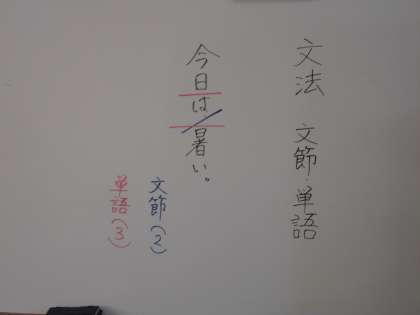 文法 文節・単語
今日は暑い。
文節(2)
単語(3)